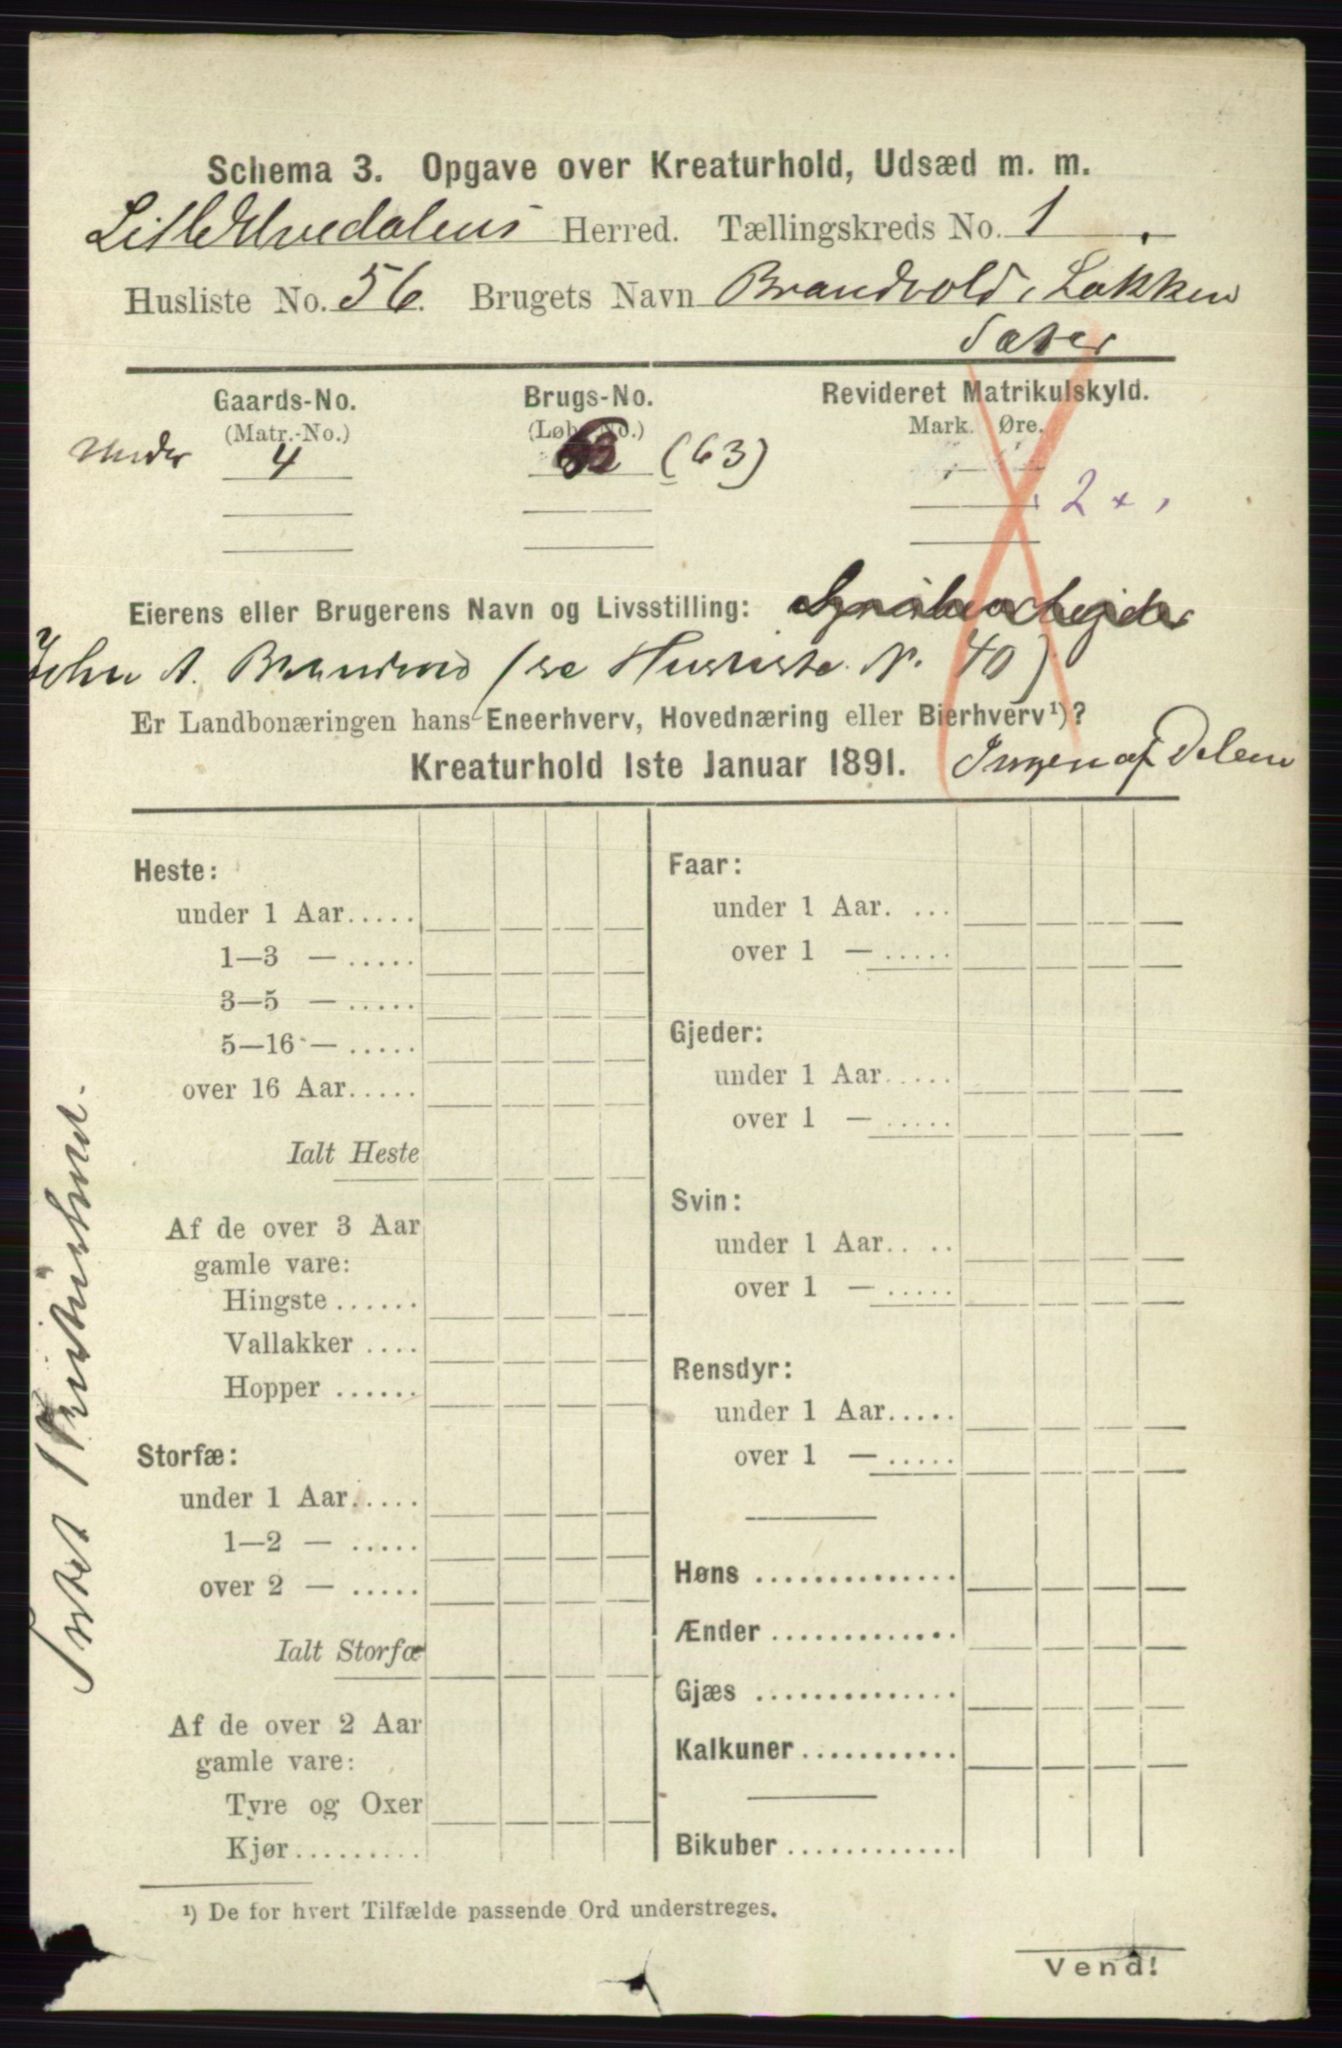 Schema 3. Opgave over Kreaturhold, Udsæd m. m.
Lille Elvedalens Herred. Tællingskreds No. 1.
Husliste No. 56. Brugets Navn Brandvold, Løkken
Sæter
Gaards-No. Brugs-No. Revideret Matrikulskyld.
(Matr.-No.) (Løb.-No.) Mark. Øre.
Under 4 (63)
2
Eierens eller Brugerens Navn og Livsstilling:
John A. Brandvold (se Husliste N. 40)
Er Landbonæringen hans Eneerhverv, Hovednæring eller Bierhverv¹)?
Kreaturhold 1ste Januar 1891. Ingen af Delene
Heste:
under 1 Aar.....
1—3 — .....
3—5 — .....
5—16 — .....
over 16 Aar.....
Ialt Heste
Af de over 3 Aar
gamle vare:
Hingste ......
Vallakker ....
Hopper ......
Storfæ:
under 1 Aar.....
1—2 — .....
over 2 — .....
Ialt Storfæ
Af de over 2 Aar
gamle vare:
Tyre og Oxer
Kjør.........
Faar:
under 1 Aar. ...
over 1 — .....
Gjeder:
under 1 Aar.....
over 1 — .....
Svin:
under 1 Aar.. ..
over 1 — .....
Rensdyr:
under 1 Aar.....
over 1 — .....
Høns ..............
Ænder .............
Gjæs ..............
Kalkuner...........
Bikuber ............
Intet Kreaturhold.
¹) De for hvert Tilfælde passende Ord understreges.
Vend!